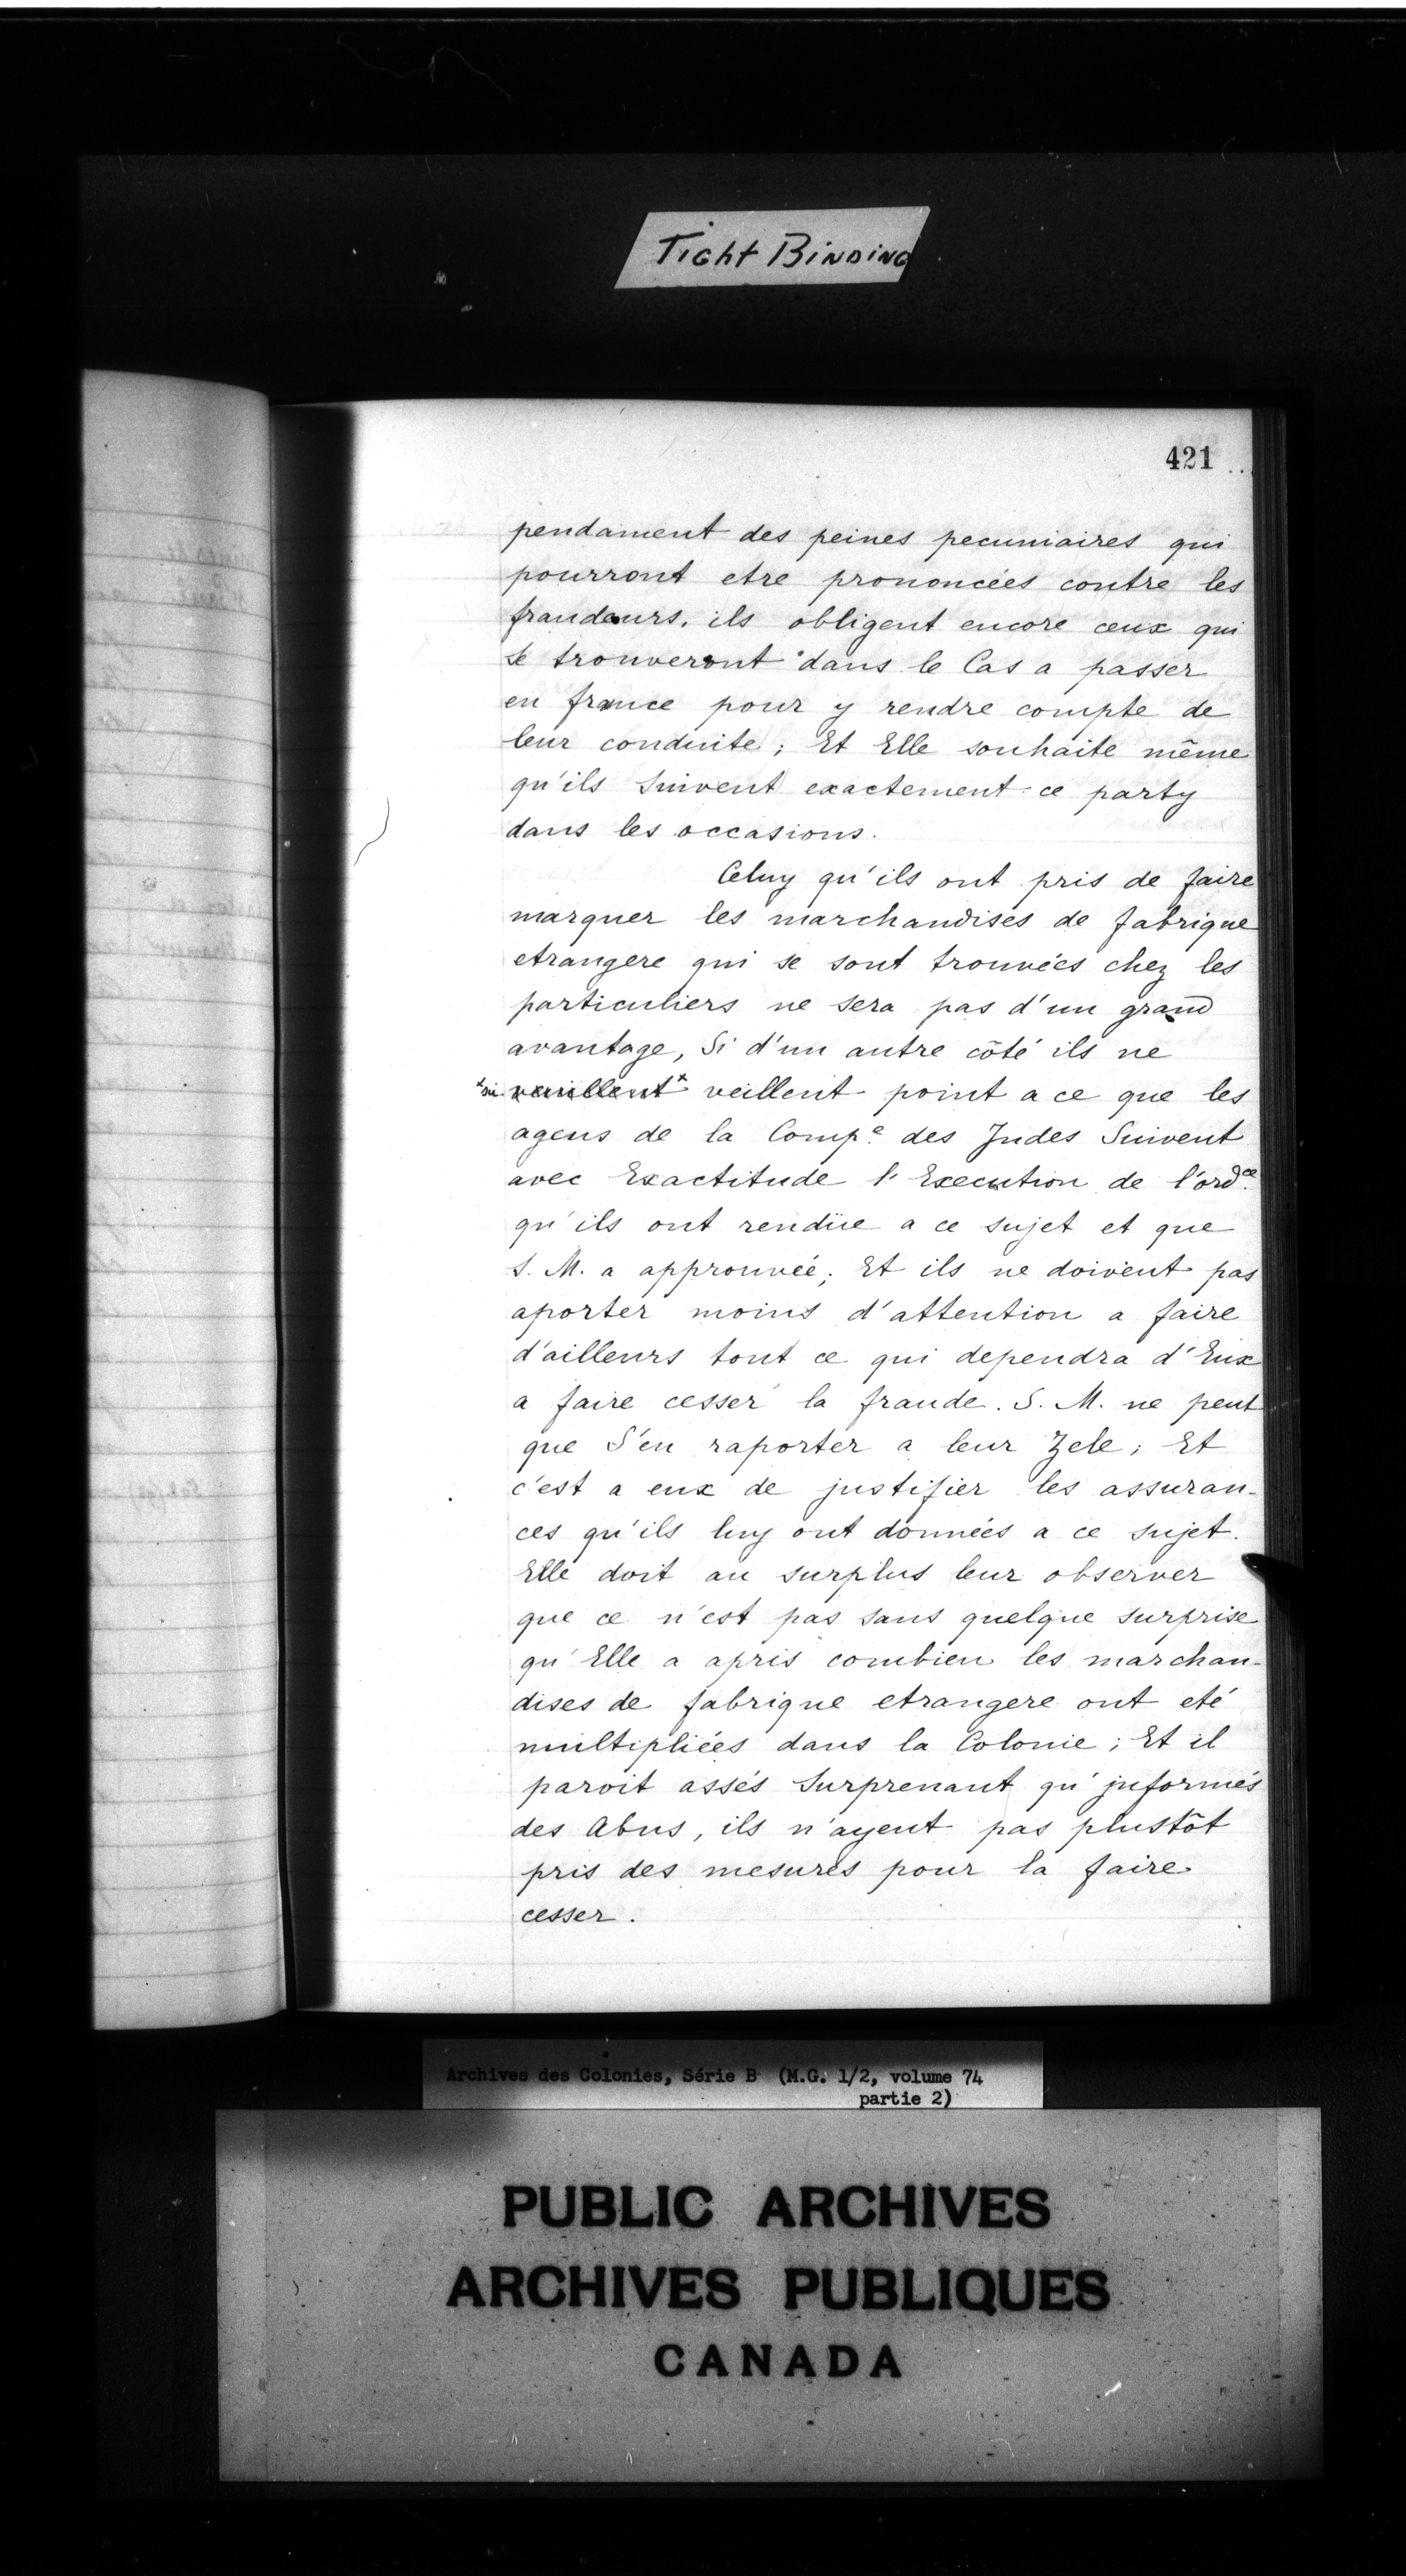 Tight Binding
421
pendament des peines pecuniaires qui
pourront etre prononcées contre les
fraudeurs, ils obligent encore ceux qui
se trouveront dans le Cas a passer
en france pour y rendre compte de
leur conduite; Et Elle souhaite même
qu'ils Suivent exactement ce party
dans les occasions.
Celuy qu'ils ont pris de faire
marquer les marchandises de fabrique
etrangere qui se sont trouvées chez les
particuliers ne sera pas d'un grand
avantage, Si d'un autre côté ils ne
veuillent x veillent point a ce que les
agens de la Compe. des Indes Suivent
avec Exactitude l'Execution de l'ordce.
qu'ils ont rendüe a ce sujet et que
S. M. a approuvée; Et ils ne doivent pas
aporter moins d'attention a faire
d'ailleurs tout ce qui dependra d'Eux
a faire cesser la fraude. S. M. ne peut
que S'en raporter a leur Zele; Et
c'est a eux de justifier les assuran-
ces qu'ils luy ont données a ce sujet.
Elle doit au surplus leur observer
que ce n'est pas sans quelque surprise
qu'Elle a apris combien les marchan-
dises de fabrique etrangere ont eté
multipliées dans la Colonie; Et il
paroit assés Surprenant qu'informés
des Abus, ils n'ayent pas plustôt
pris des mesures pour la faire
cesser.
Archives des Colonies, Série B (M.G. 1/2, volume 74
partie 2)
PUBLIC ARCHIVES
ARCHIVES PUBLIQUES
CANADA